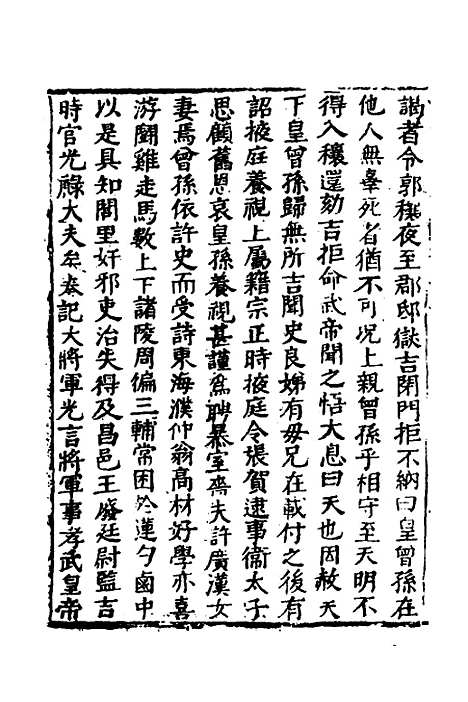 謁者令郭穰夜至郡邸獄吉閉門拒不納曰皇曾孫在
他人無辜死者猶不可况上親曾孫乎相守至天明不
得入穰還劾吉拒命武帝聞之悟大息曰天也因赦天
下皇曾孫歸無所吉聞史良娣有母兄在載付之後有
詔掖庭養視上屬籍宗正時掖庭令張賀逮事衞太子
思顧舊恩哀皇孫養視甚謹爲聘暴室嗇夫許廣漢女
妻焉曾孫依許史而受詩東海濮仲翁高材好學亦喜
游鬭雞走馬數上下諸陵周徧三輔常困於蓮勺鹵中
以是具知閭里奸邪吏治失得及昌邑王廢廷尉監吉
時官光祿大夫矣奏記大將軍光言將軍事孝武皇帝